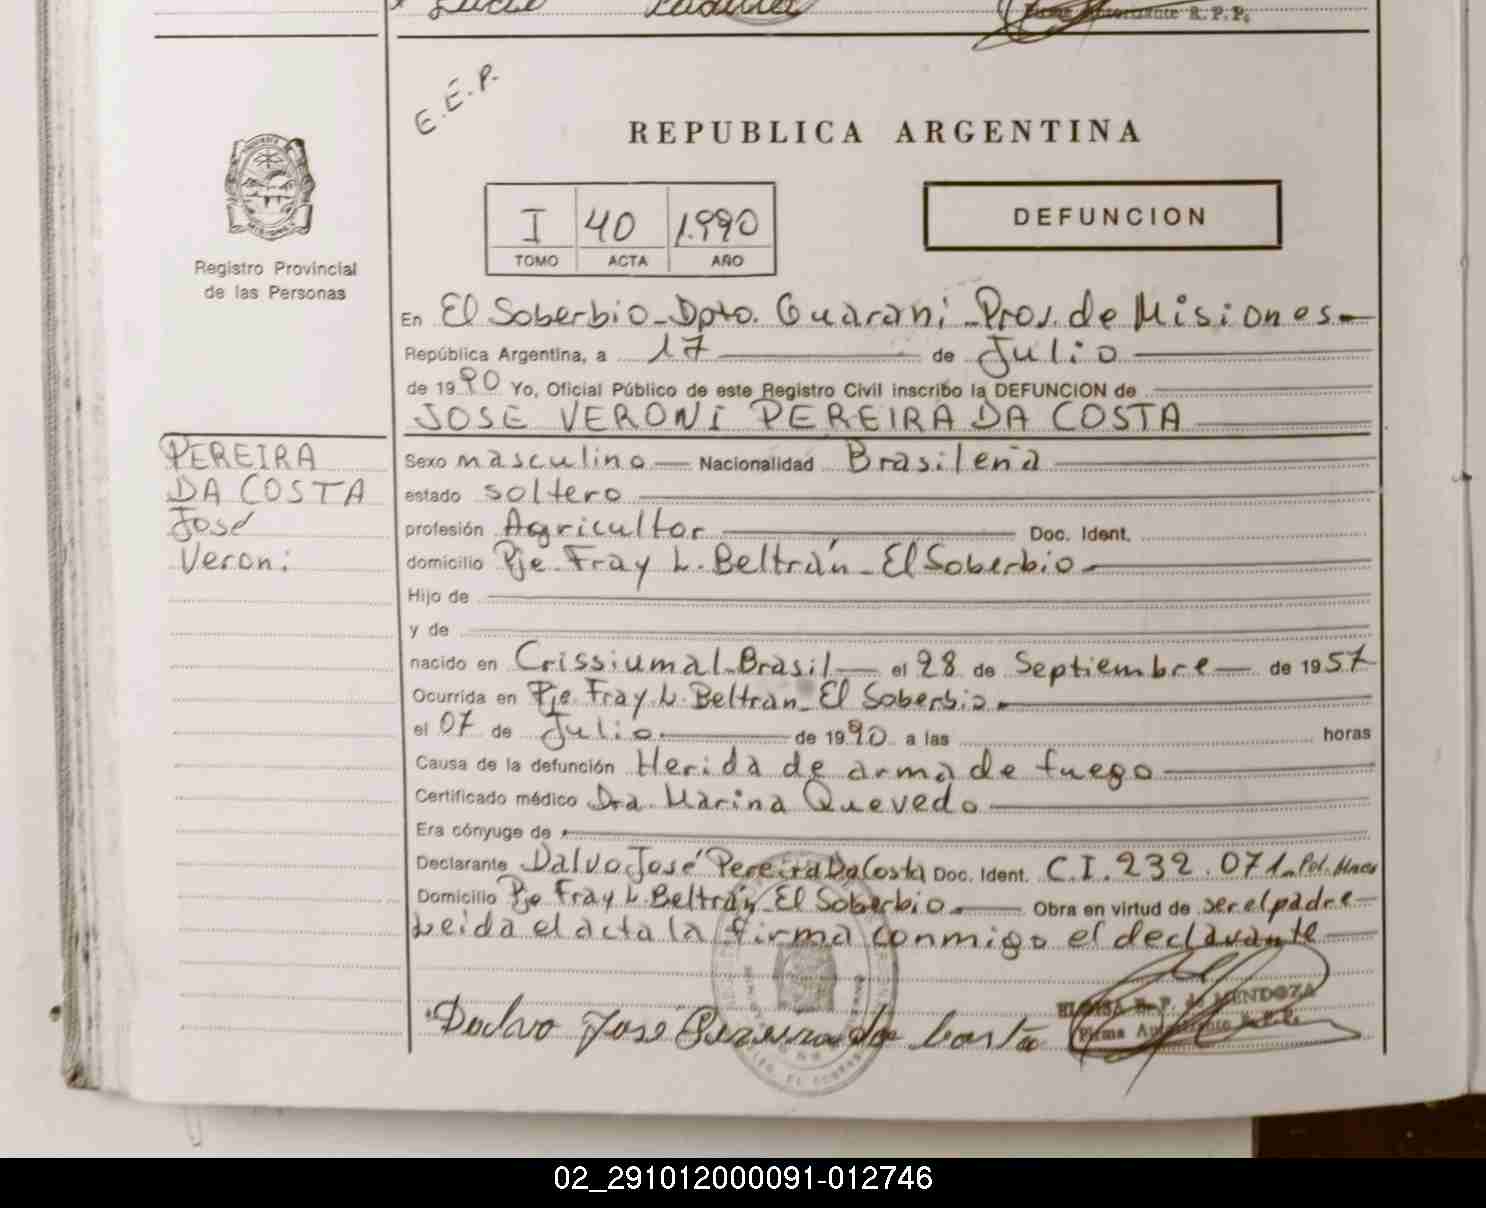 E.E.P.
REPUBLICA ARGENTINA
I 40 1.990
TOMO ACTA AÑO
DEFUNCION
Registro Provincial
de las Personas
En El Soberbio - Dpto. Guarani - Prov. de Misiones -
República Argentina, a 17 de Julio
de 1990 Yo, Oficial Público de este Registro Civil inscribo la DEFUNCION de
JOSE VERONI PEREIRA DA COSTA
PEREIRA
DA COSTA
José
Veroni
Sexo masculino Nacionalidad Brasileña
estado soltero
profesión Agricultor Doc. Ident.
domicilio Pje. Fray L. Beltrán - El Soberbio -
Hijo de
y de
nacido en Crissiumal - Brasil - el 28 de Septiembre de 1957
Ocurrida en Pje. Fray L. Beltran - El Soberbio -
el 07 de Julio de 1990 a las horas
Causa de la defunción Herida de arma de fuego
Certificado médico Dra. Marina Quevedo
Era cónyuge de
Declarante Dalvo José Pereira Da Costa Doc. Ident. C.I. 232.071 - Pol. Mnes
Domicilio Pje Fray L. Beltrán - El Soberbio - Obra en virtud de ser el padre -
Leida el acta la firma conmigo el declarante
Dalvo José Pereira da Costa
ELOISA R. P. de MENDOZA
Firma Autorizante R.P.P.
02_291012000091-012746